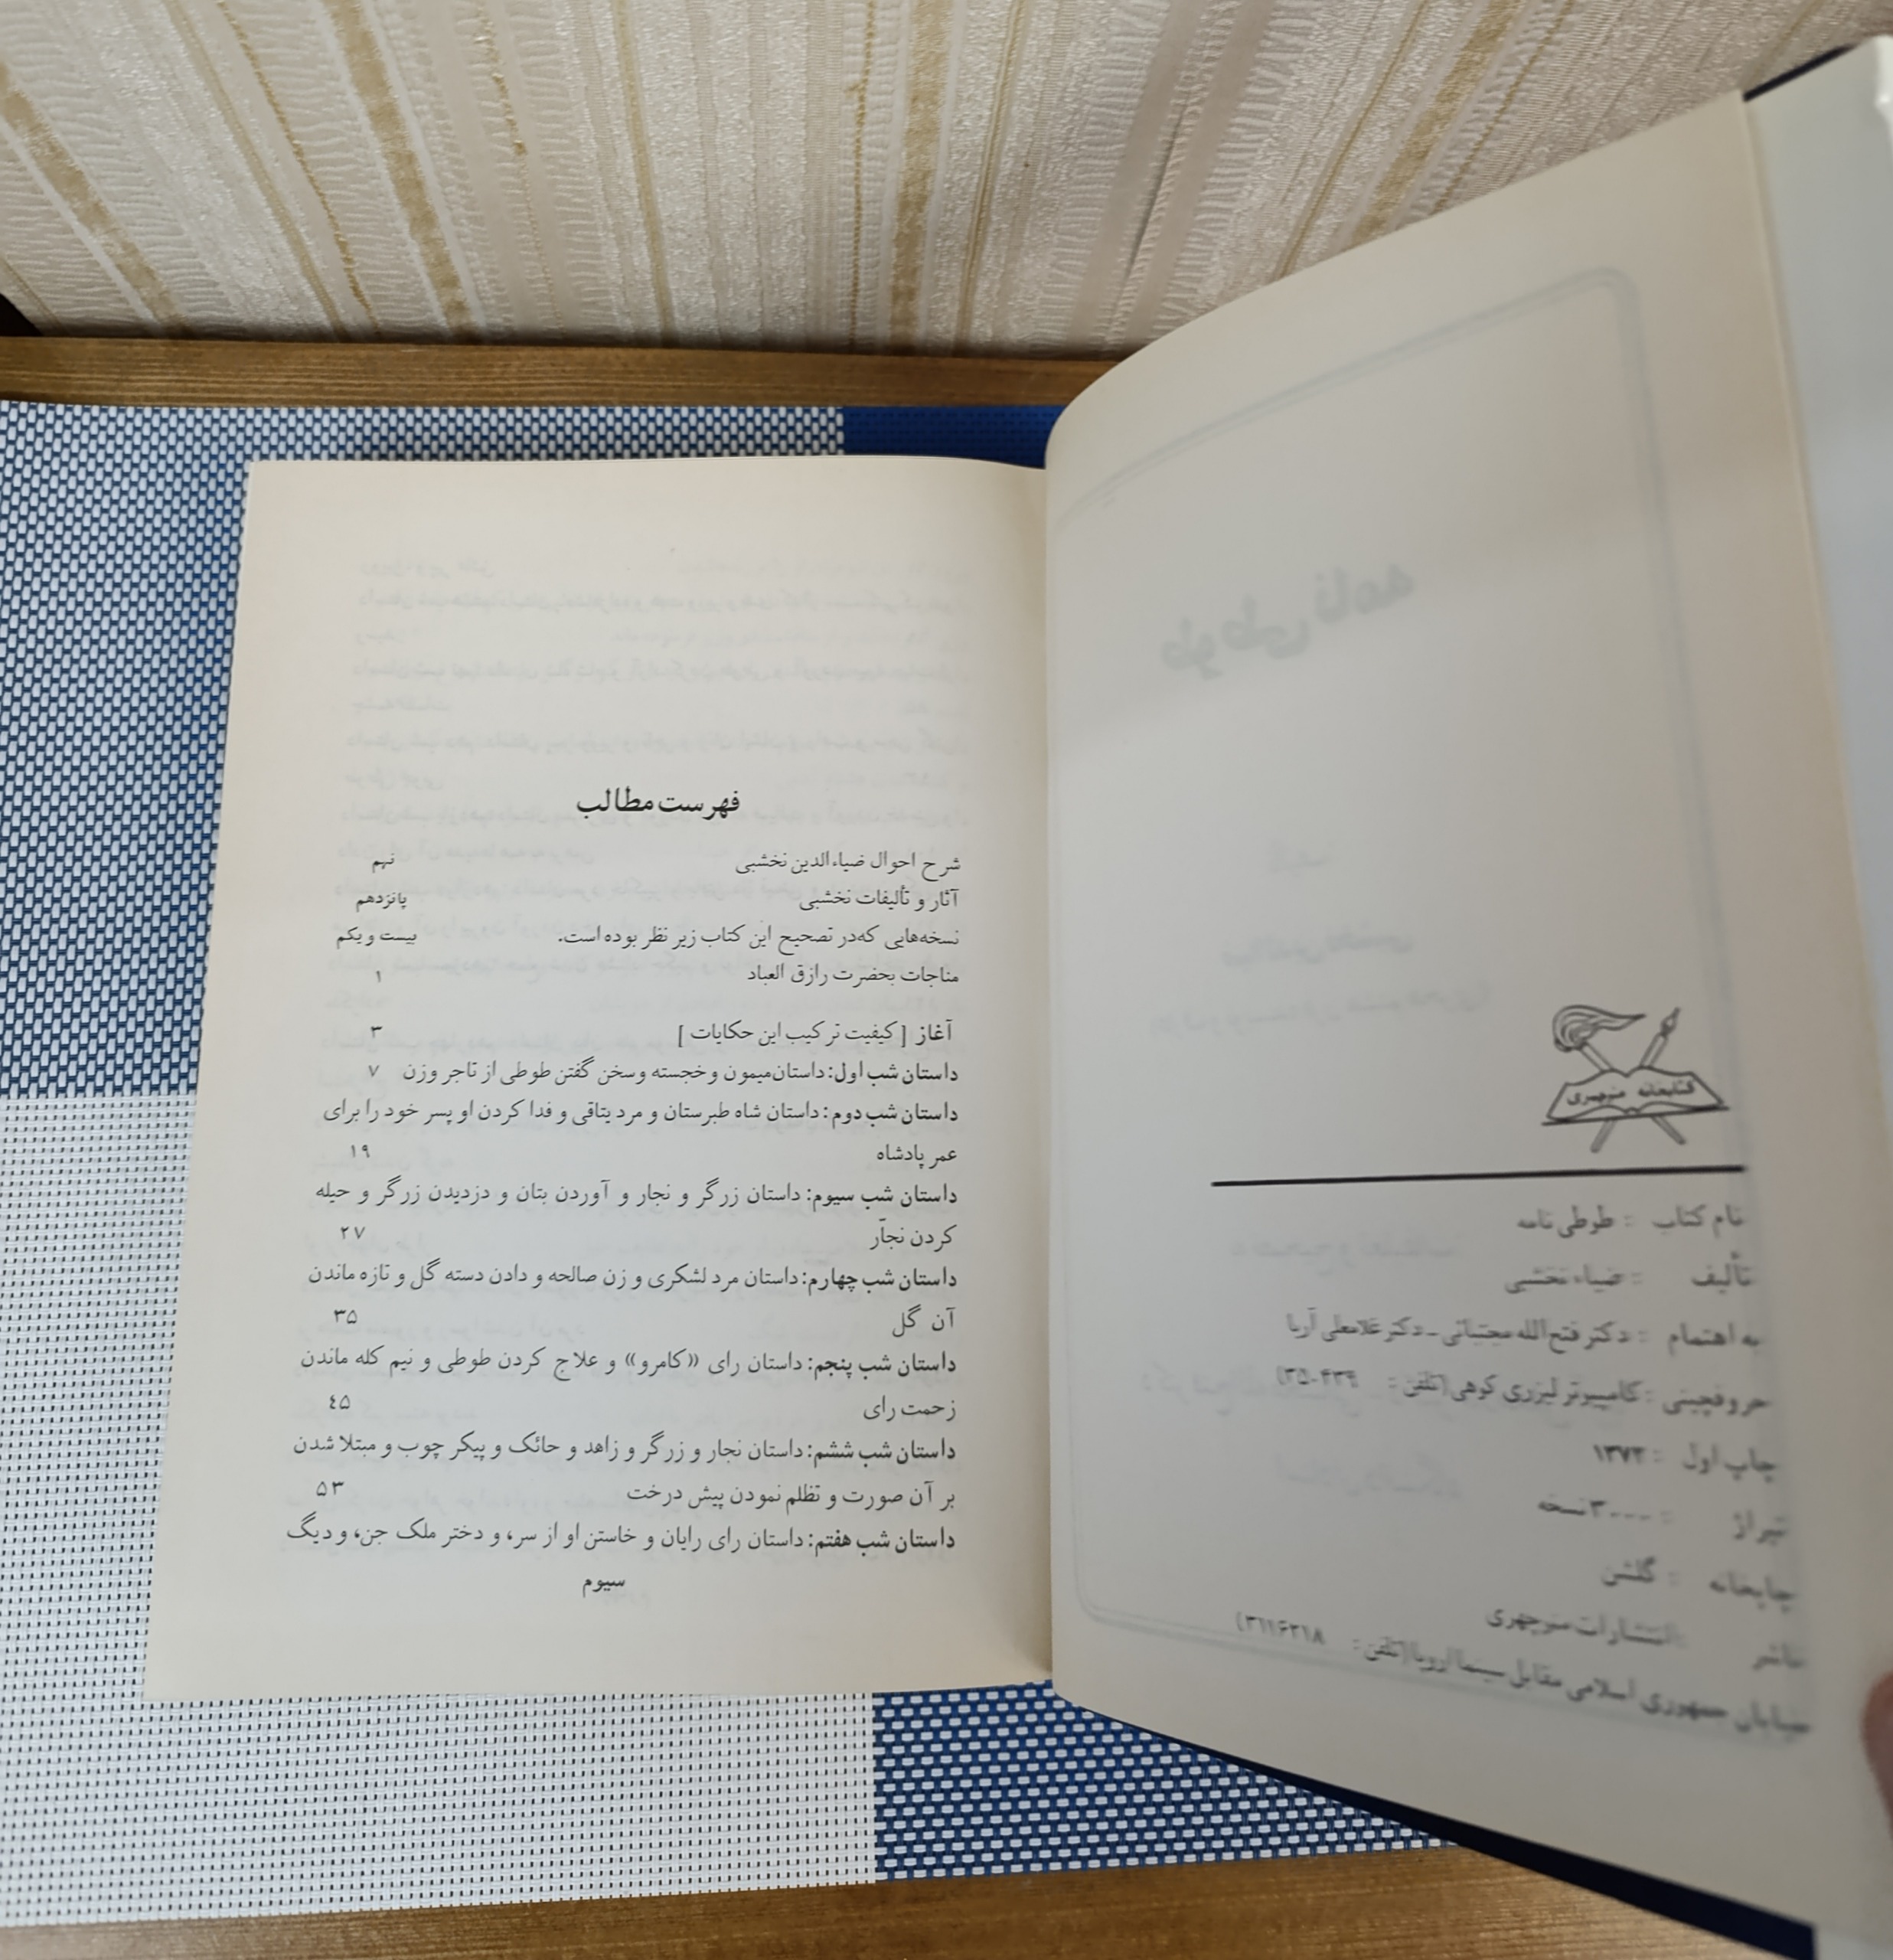 کتابخانه منوچهری
نام کتاب : طوطی نامه
تألیف : ضیاء نخشبی
به اهتمام : دکتر فتح‌الله مجتبائی ـ دکتر غلامعلی آریا
حروفچینی : کامپیوتر لیزری کوهی (تلفن:
چاپ اول : ۱۳۷۲
تیراژ : ۳۰۰۰ نسخه
چاپخانه : گلشن
ناشر : انتشارات منوچهری
خیابان جمهوری اسلامی مقابل سینما اروپا (تلفن:
فهرست مطالب
شرح احوال ضیاءالدین نخشبی نهم
آثار و تألیفات نخشبی پانزدهم
نسخه‌هایی که‌در تصحیح این کتاب زیر نظر بوده است. بیست و یکم
مناجات بحضرت رازق العباد ۱
آغاز [کیفیت ترکیب این حکایات] ۳
داستان شب اول: داستان میمون و خجسته و سخن گفتن طوطی از تاجر و زن ۷
داستان شب دوم: داستان شاه طبرستان و مرد یتاقی و فدا کردن او پسر خود را برای
عمر پادشاه ۱۹
داستان شب سیوم: داستان زرگر و نجار و آوردن بتان و دزدیدن زرگر و حیله
کردن نجّار ۲۷
داستان شب چهارم: داستان مرد لشکری و زن صالحه و دادن دسته گل و تازه ماندن
آن گل ۳۵
داستان شب پنجم: داستان رای «کامرو» و علاج کردن طوطی و نیم کله ماندن
زحمت رای ٤۵
داستان شب ششم: داستان نجار و زرگر و زاهد و حائک و پیکر چوب و مبتلا شدن
بر آن صورت و تظلم نمودن پیش درخت ۵۳
داستان شب هفتم: داستان رای رایان و خاستن او از سر، و دختر ملک جن، و دیگ
سیوم